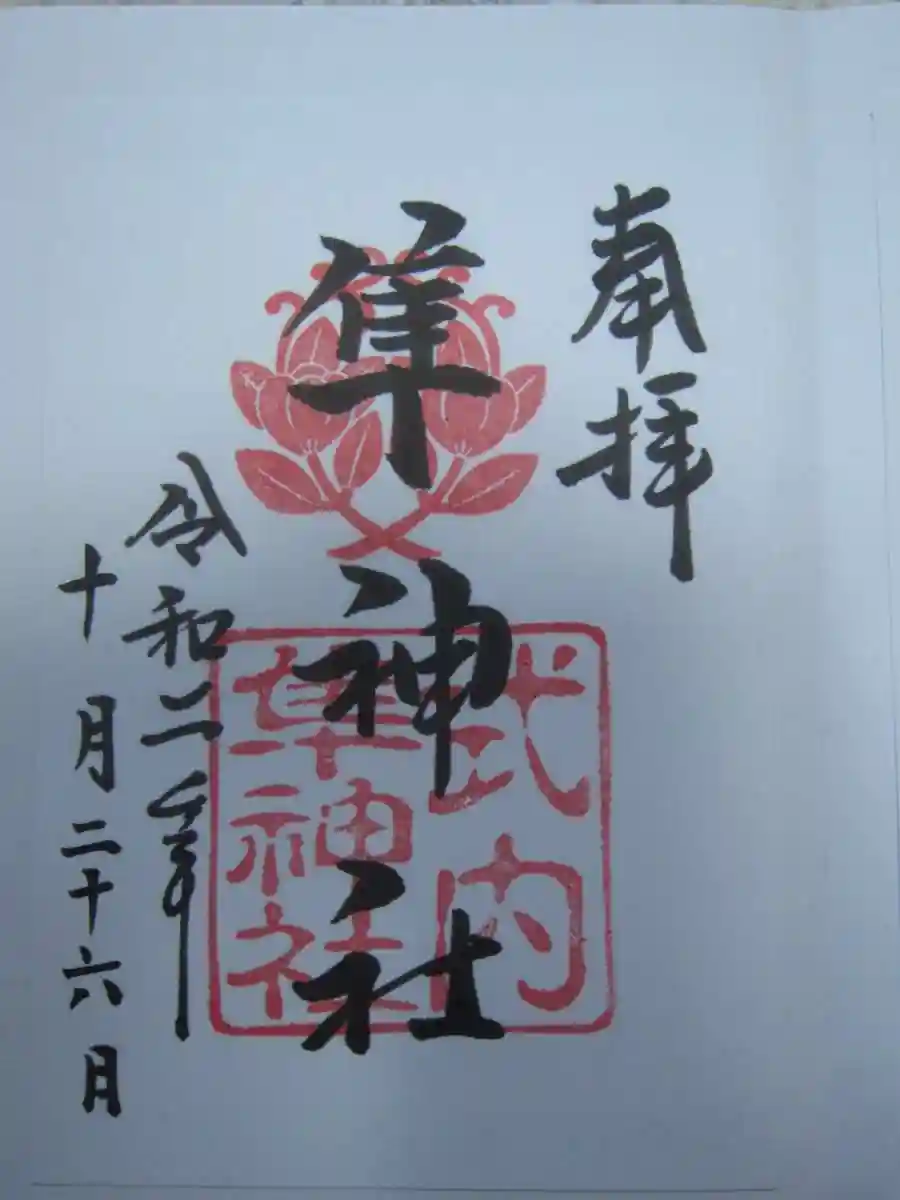 奉拝
隼神社
式内
隼神社
令和二年
十月二十六日